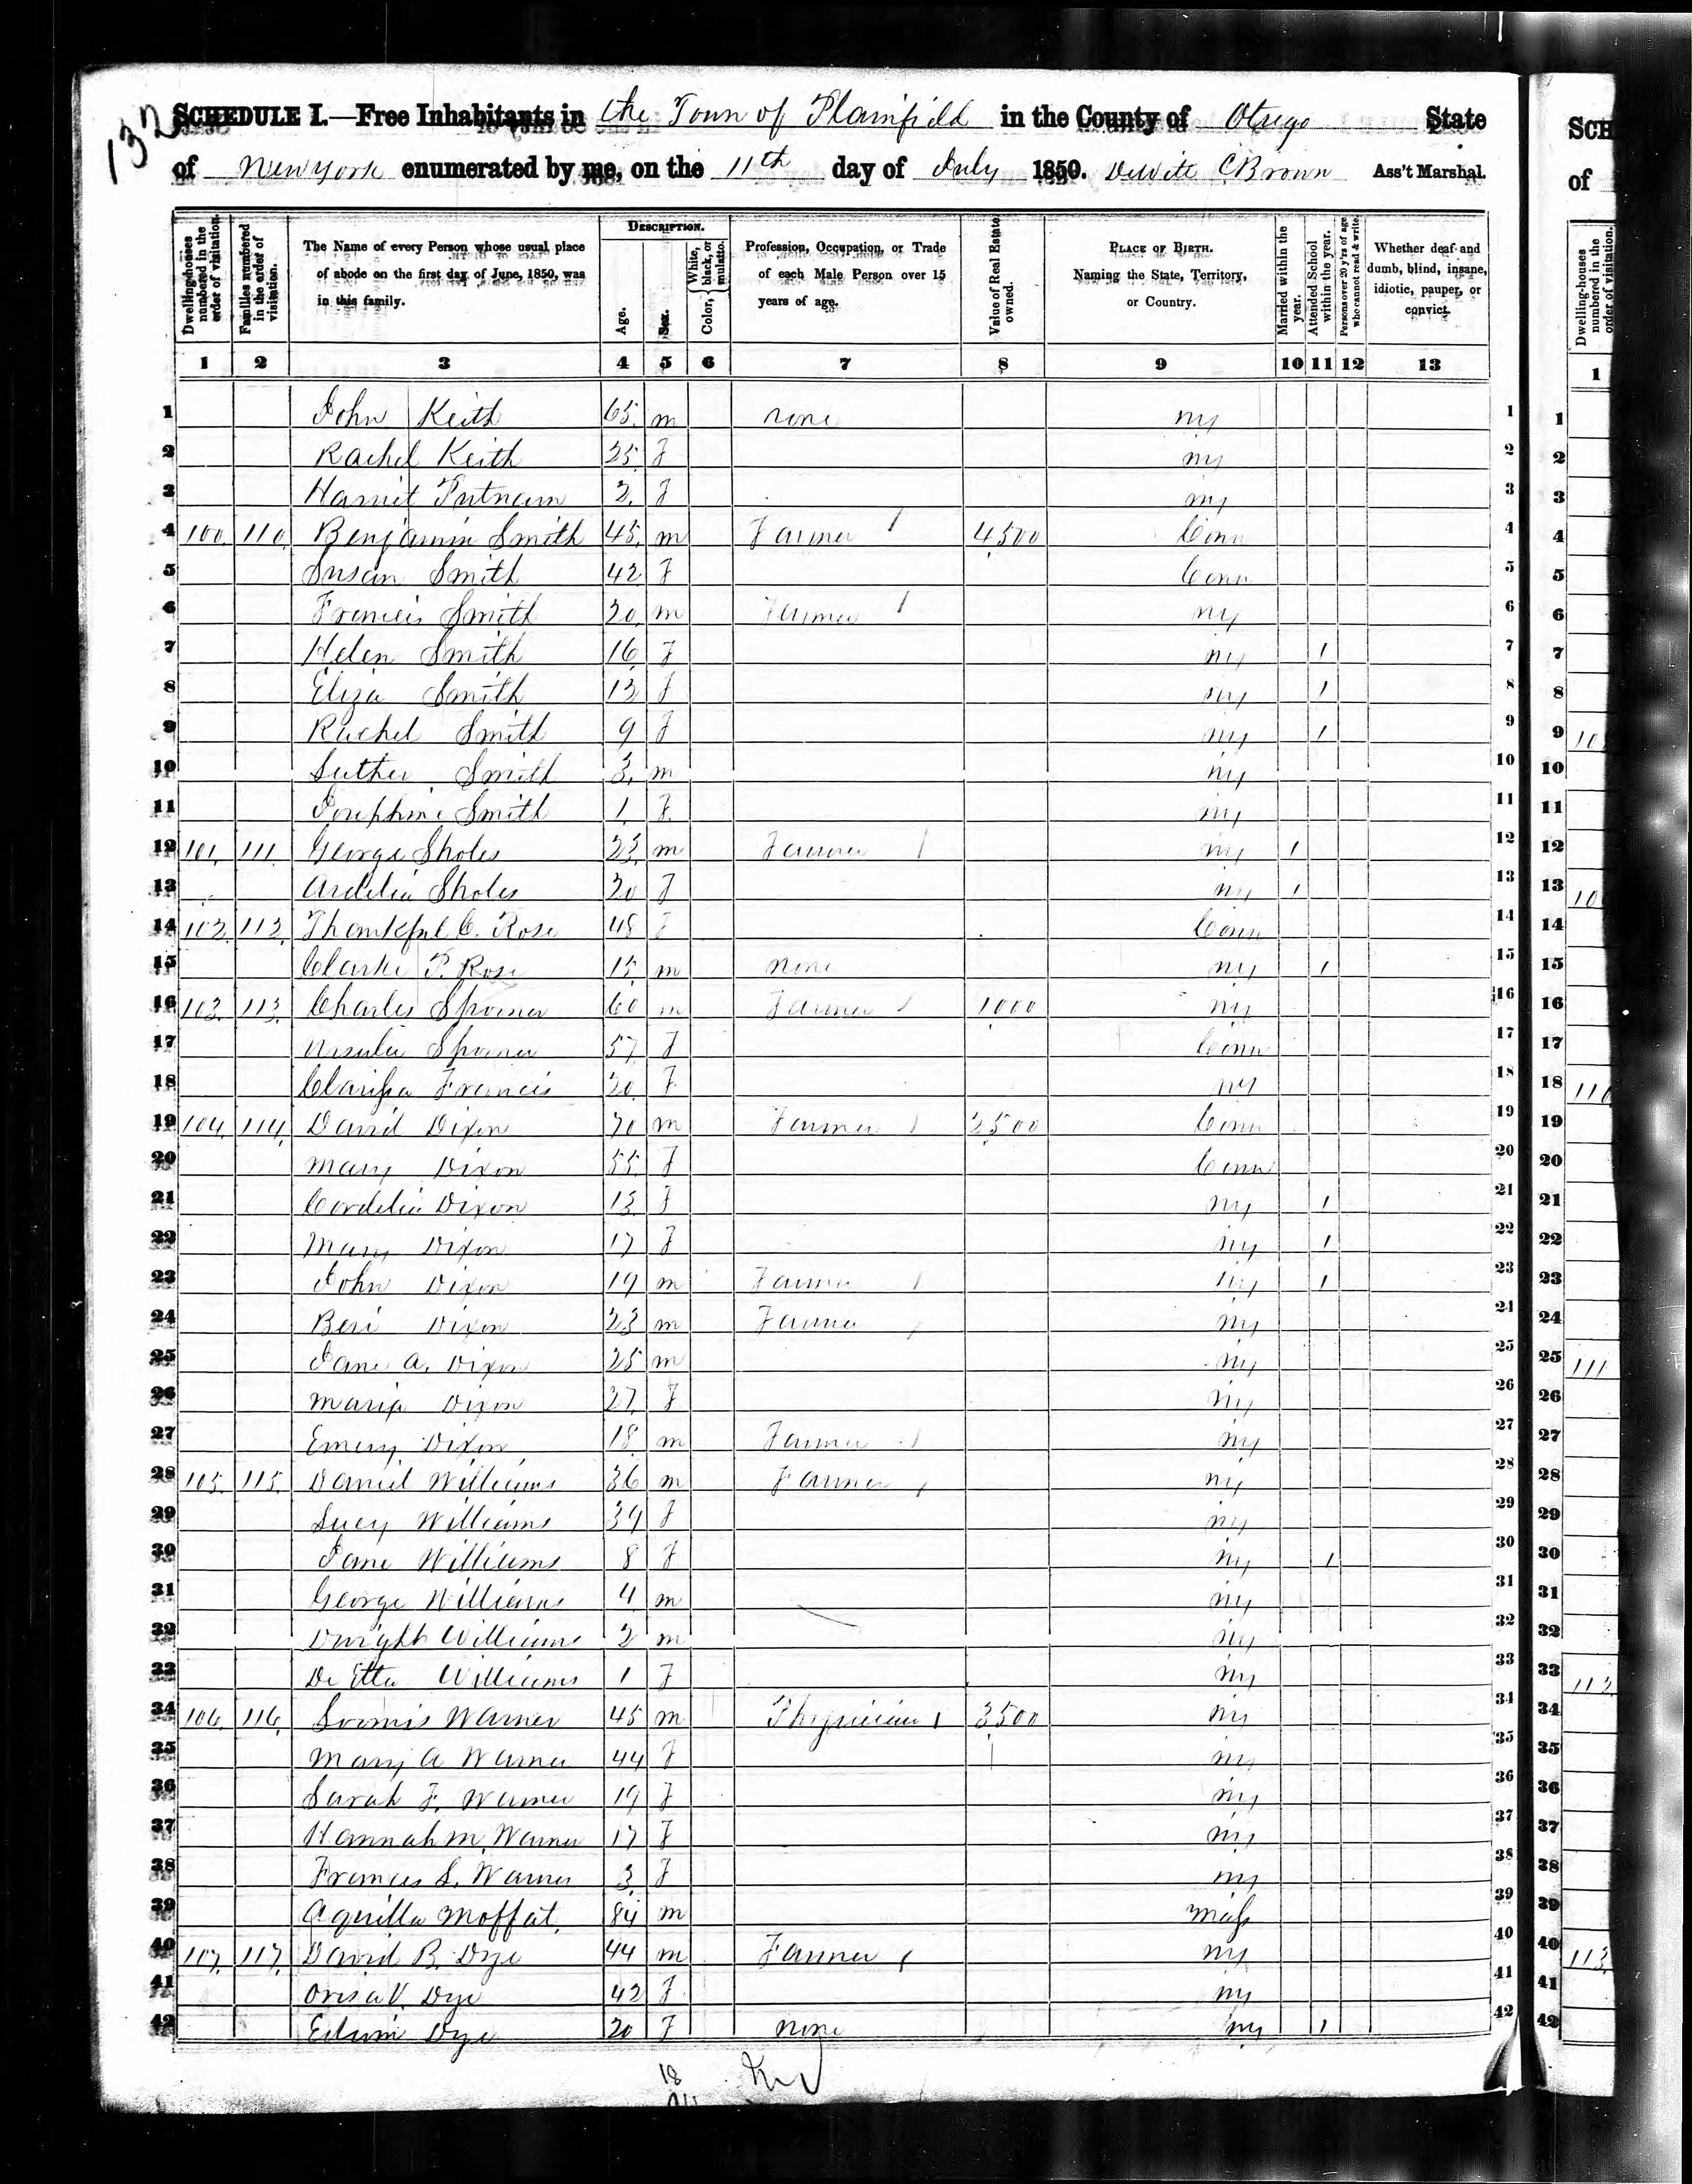 132
SCHEDULE I.—Free Inhabitants in the Town of Plainfield in the County of Otsego State
of New York enumerated by me, on the 11th day of July 1850. DeWitt C Brown Ass't Marshal.
Dwelling-houses numbered in the order of visitation.
Families numbered in the order of visitation.
The Name of every Person whose usual place of abode on the first day of June, 1850, was in this family.
DESCRIPTION.
Age.
Sex.
Color, White, black, or mulatto.
Profession, Occupation, or Trade of each Male Person over 15 years of age.
Value of Real Estate owned.
PLACE OF BIRTH. Naming the State, Territory, or Country.
Married within the year.
Attended School within the year.
Persons over 20 y'rs of age who cannot read & write.
Whether deaf and dumb, blind, insane, idiotic, pauper, or convict.
1 2 3 4 5 6 7 8 9 10 11 12 13
1 John Keith 65 m none ny 1
2 Rachel Keith 25 F ny 2
3 Harriet Putnam 2 F ny 3
4 100 110 Benjamin Smith 45 m Farmer 1 4500 Conn 4
5 Susan Smith 42 F Conn 5
6 Francis Smith 20 m Farmer 1 ny 6
7 Helen Smith 16 F ny 1 7
8 Eliza Smith 13 F ny 1 8
9 Rachel Smith 9 F ny 1 9
10 Luther Smith 3 m ny 10
11 Josephine Smith 1 F ny 11
12 101 111 George Sholes 23 m Farmer 1 ny 1 12
13 Ardelia Sholes 20 F ny 1 13
14 102 112 Thankful C. Rose 48 F Conn 14
15 Clarke P. Rose 15 m none ny 1 15
16 103 113 Charles Spooner 60 m Farmer 1 1000 ny 16
17 Ursula Spooner 57 F Conn 17
18 Clarissa Francis 20 F ny 18
19 104 114 David Dixon 70 m Farmer 1 2500 Conn 19
20 Mary Dixon 55 F Conn 20
21 Cordelia Dixon 13 F ny 1 21
22 Mary Dixon 17 F ny 1 22
23 John Dixon 19 m Farmer 1 ny 1 23
24 Beri Dixon 23 m Farmer 1 ny 24
25 Jane A. Dixon 25 m ny 25
26 Dixon 27 F ny 26
27 Emery Dixon 18 m Farmer 1 ny 27
28 105 115 Daniel Williams 36 m Farmer 1 ny 28
29 Lucy Williams 34 F ny 29
30 Jane Williams 8 F ny 1 30
31 George Williams 4 m ny 31
32 Dwight Williams 2 m ny 32
33 De Etta Williams 1 F ny 33
34 106 116 Loomis Warner 45 m Physician 1 3500 ny 34
35 Mary A Warner 44 F ny 35
36 Sarah F. Warner 19 F ny 36
37 Hannah M. Warner 17 F ny 37
38 Frances S. Warner 3 F ny 38
39 Aquilla Moffat 84 m Mass 39
40 107 117 David B. Dye 44 m Farmer 1 ny 40
41 Orisa V. Dye 42 F ny 41
42 Edwin Dye 20 F none ny 1 42
18